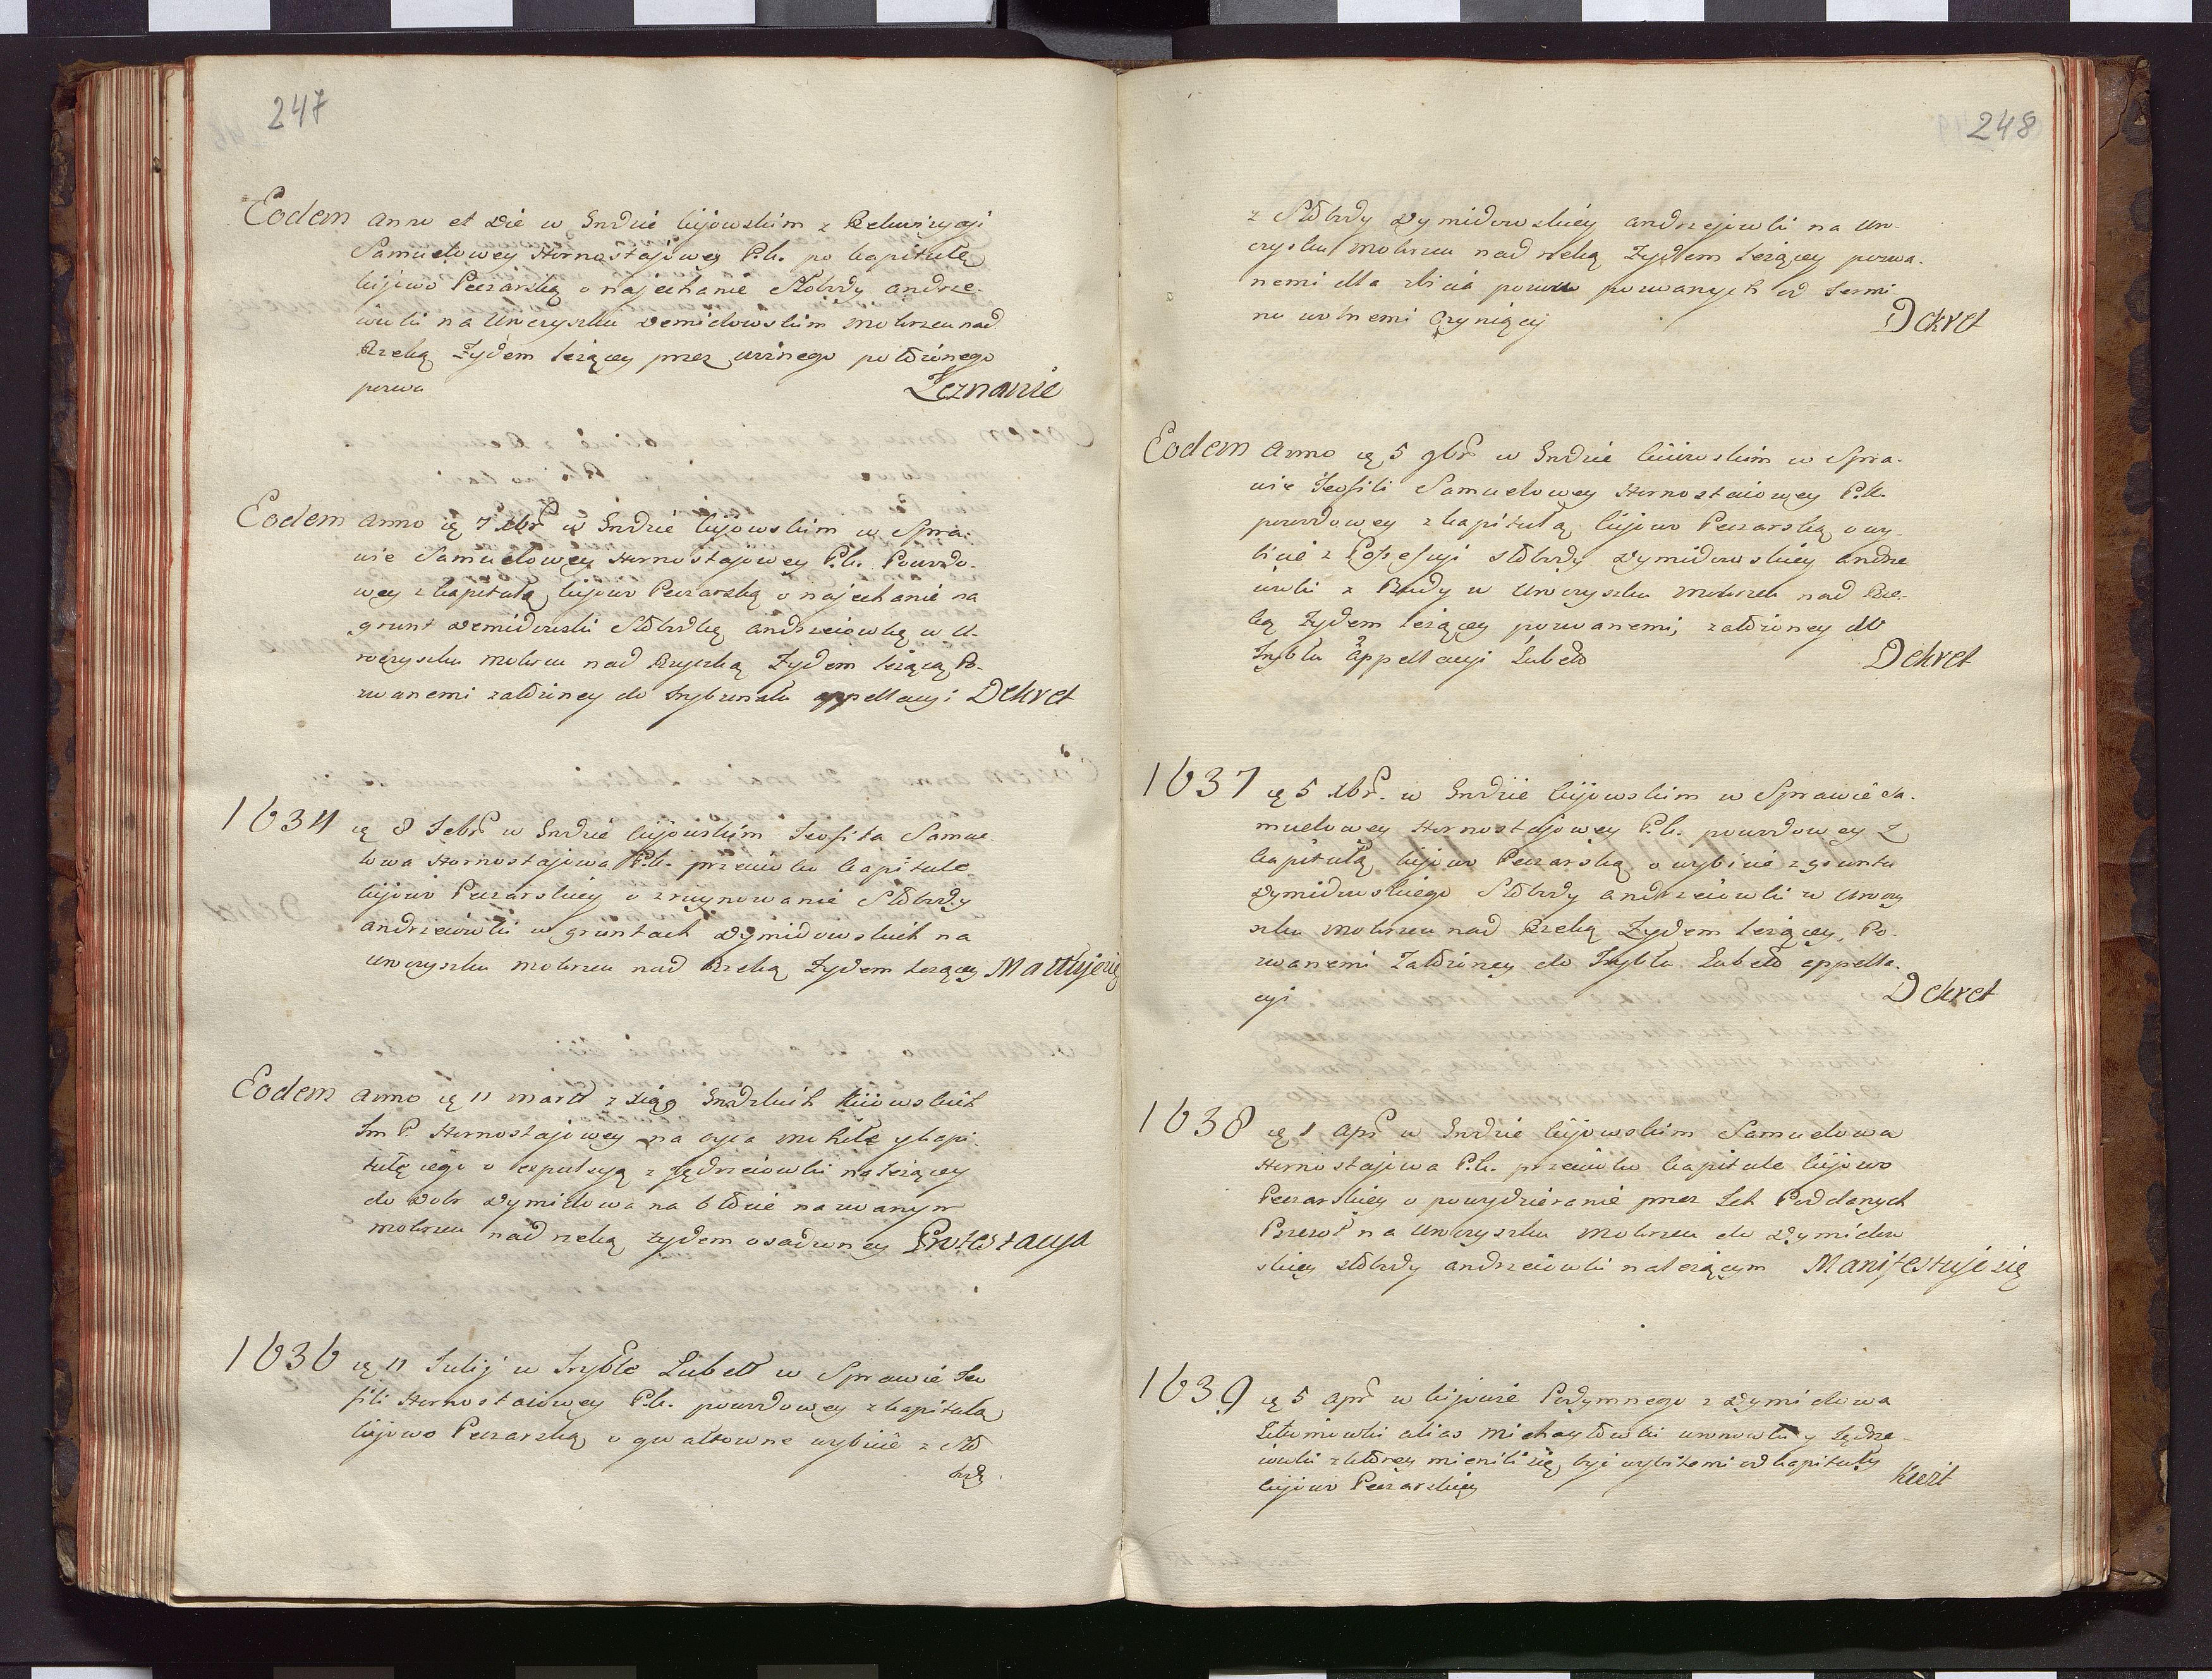 247
Eodem anno et die w Grodzie kijowskim z Rekwizycyi
Samuelowey Hornostajowey P.K. po kapitułę
kijowo Pieczarską o najechanie Słobody andrze-
iowki na Uroczysku Demidowskim Mokrcu nad
Rzeką Zydem leżącey przez woźnego położonego
pozwu Zeznanie
Eodem anno ię 7 Xbr̃ w Grodzie kijowskim w Spra-
wie Samuelowey Hornostajowey P.K. Powodo-
wey z kapitułą kijowo Pieczarską o najechanie na
grunt Demidowski Słobodkę andrzeiowkę w U-
roczysku Mokrcu nad Rzyczką Zydem leżącą Po-
zwanemi założoney do Trybunału appellacyi Dekret
1634 ię 8 Febr̃ w Grodzie kijowskim Teofila Samue-
lowa Hornostajowa P.K. przeciwko kapitule
kijowo Pieczarskiey o zruynowanie Słobody
andrzeiowki w gruntach Dymidowskich na
Uroczysku Mokrcu nad Rzeką Zydem leżącey
Eodem anno ię 11 Martii z Xiąg Grodzkich Kiiowskich
Im P. Hornostajowey na oyca Mohiłę y kapi-
tułę iego o expulsyą z Jędrzeiowki należącey
do Dobr Dymidowa na błocie nazwanym
Mokrcu nad rzeką Zydem osadzoney Protestacya
1636 ię 11 Julij w Tryble Lubell w Sprawie Teo
fili Hornostaiowey P.K. powodowey z kapitułą
kijowo Pieczarską o gwałtowne wybicie z Sło
body
248
z Słobody Dymidowskiey andrzejowki na Uro-
czysku Mokrcu nad rzeką Zydem leżącey pozwa-
nemi dla zbicia pozwu pozwanych od termi-
nu wolnemi czyniący Dekret
Eodem anno ię 5 9br̃ w Grodzie kiiowskim w Spra-
wie Teofili Samuelowey Hornostaiowey P.K.
powodowey z kapitułą kijowo Pieczarską o wy-
bicie z Possessyi Słobody Dymidowskiey andrze
iowki z Rudy w Uroczysku Mokrcu nad Rze-
ką Zydem leżącey pozwanemi, założoney do
Trybłu appellacyi Lubello Dekret
1637 ię 5 Xbr̃. w Grodzie kijowskim w Sprawie Sa-
muelowey Hornostajowey P.K. powodowey z
kapitułą kijowo Pieczarską o wybicie z gruntu
Dymidowskiego Słobody andrzeiowki w Uroczy
sku Mokrcu nad Rzeką Zydem leżącey, Po-
zwanemi Założoney do Trybłu Lubello appella-
cyi Dekret
1638 ię 1 apr̃ w Grodzie kijowskim Samuelowa
Hornostajowa P.K. przeciwko kapitule kijowo
Pieczarskiey o powydzieranie przez Ich Poddanych
Pszczoł na Uroczysku Mokrcu do Dymidow
skiey słobody andrzeiowki należącym Manifestuje się
1639 ię 5 apr̃ w kijowie Podymnego z Dymidowa
alias Michayłowki y Jędrze-
iowki z ktorey mienili się być wybitemi od kapituły
kijowo Pieczarskiey Kwit